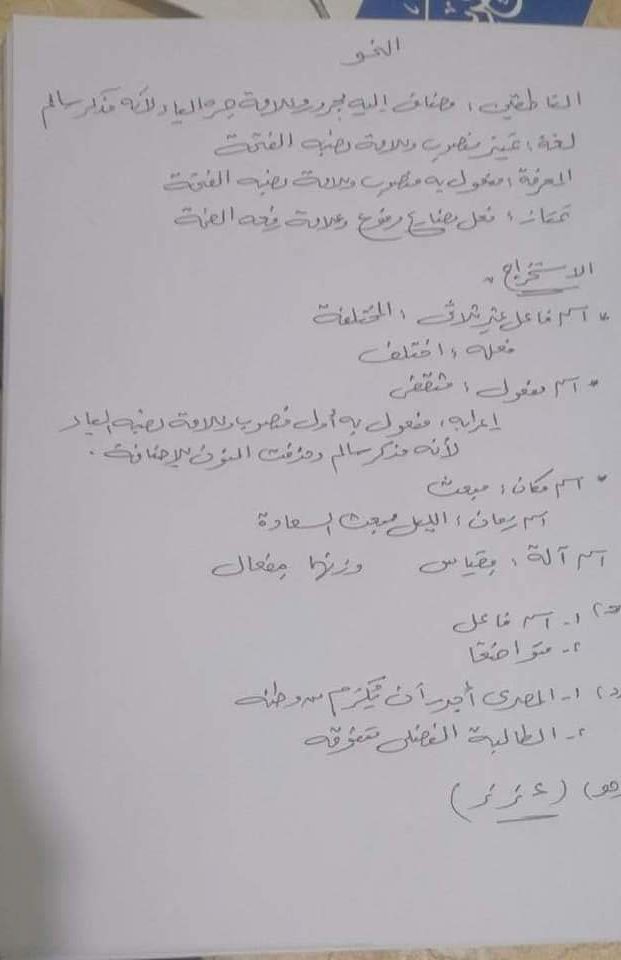 النحو
الناطقين : مضاف إليه مجرور وعلامة جره الياء لأنه مذكر سالم
لغة : تمييز منصوب وعلامة نصبه الفتحة
المعرفة : مفعول به منصوب وعلامة نصبه الفتحة
تمتاز : فعل مضارع مرفوع وعلامة رفعه الضمة
الاستخراج
* اسم فاعل غير ثلاثى : المختلفة
فعله : اختلف
* اسم مفعول : مثقفى
إعرابه : مفعول به أول منصوب وعلامة نصبه الياء
لأنه مذكر سالم وحذفت النون للإضافة .
* اسم مكان : مبعث
اسم زمان : الليل مبعث السعادة
اسم آلة : مقياس وزنها مفعال
حـ) ١- اسم فاعل
٢- متواضعا
د) ١- المصرى أجدر أن يُكرم من وطنه
٢- الطالبة الفضلى متفوقة
هو) (عزز)